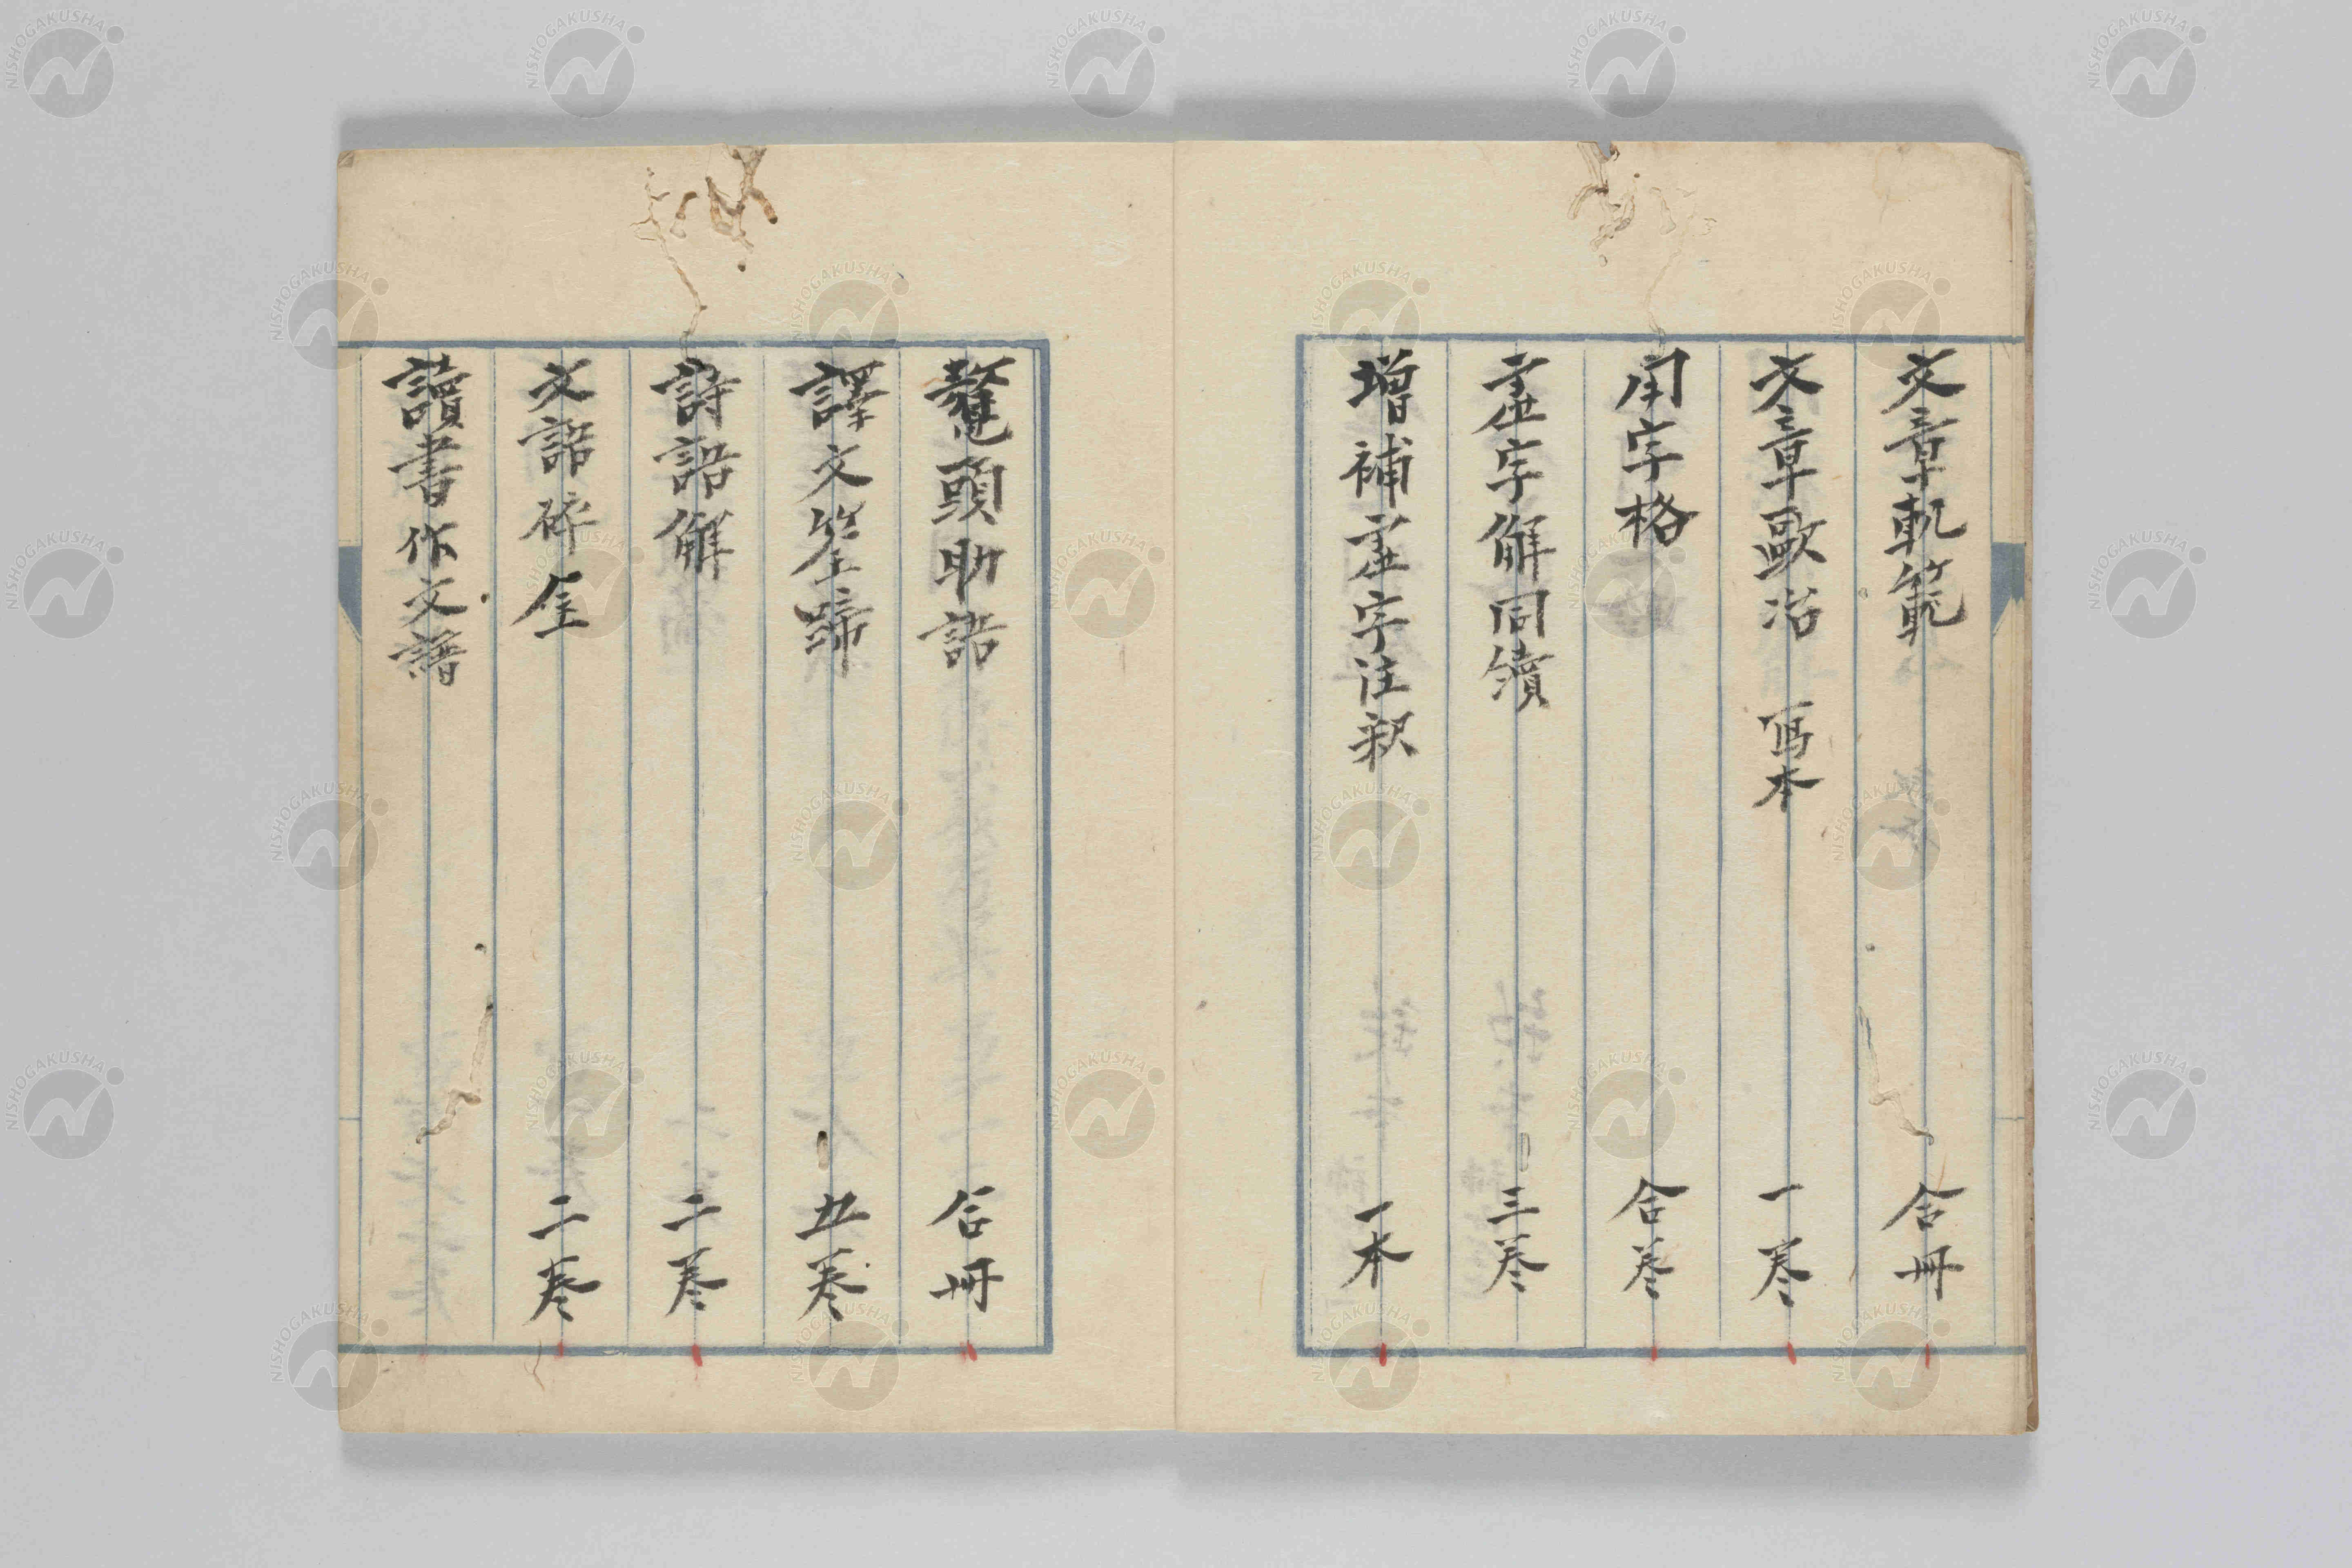 文章軌範 合冊
文章歐冶 写本 一巻
用字格 合巻
虚字解同續 三巻
増補虚字注釈 一本
鼇頭助語 合冊
譯文筌蹄 五巻
詩語解 二巻
文語碎金 二巻
讀書作文譜